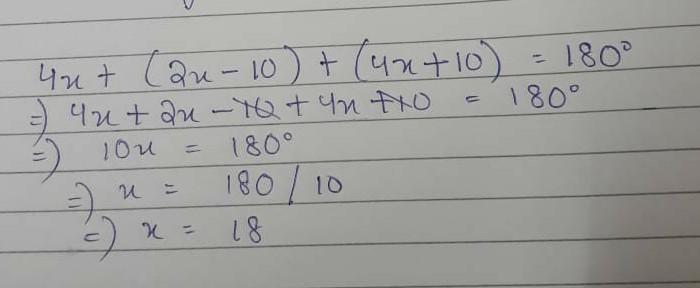 4x + (2x - 10) + (4x + 10) = 180°
=) 4x + 2x - 10 + 4x + 10 = 180°
=) 10x = 180°
=) x = 180 / 10
=) x = 18